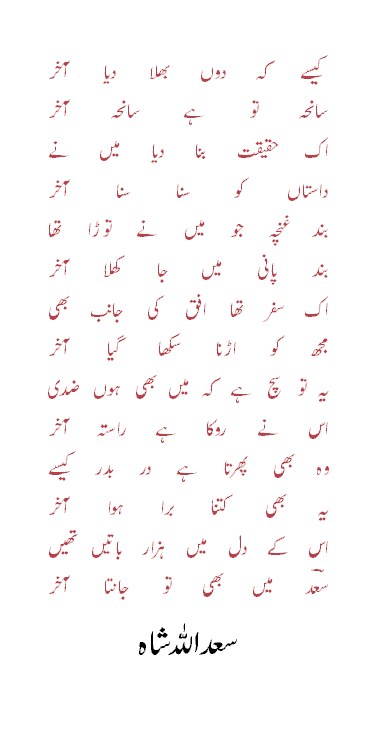 کیسے کہ دوں بھلا دیا آخر
سانحہ تو ہے سانحہ آخر
اک حقیقت بنا دیا میں نے
داستاں کو سنا سنا آخر
بند غنچہ جو میں نے توڑا تھا
بند پانی میں جا کھلا آخر
اک سفر تھا افق کی جانب بھی
مجھ کو اڑنا سکھا گیا آخر
یہ تو سچ ہے کہ میں بھی ہوں ضدی
اس نے روکا ہے راستہ آخر
وہ بھی پھرتا ہے در بدر کیسے
یہ بھی کتنا برا ہوا آخر
اس کے دل میں ہزار باتیں تھیں
سعدؔ میں بھی تو جانتا آخر
سعداللہ شاہ